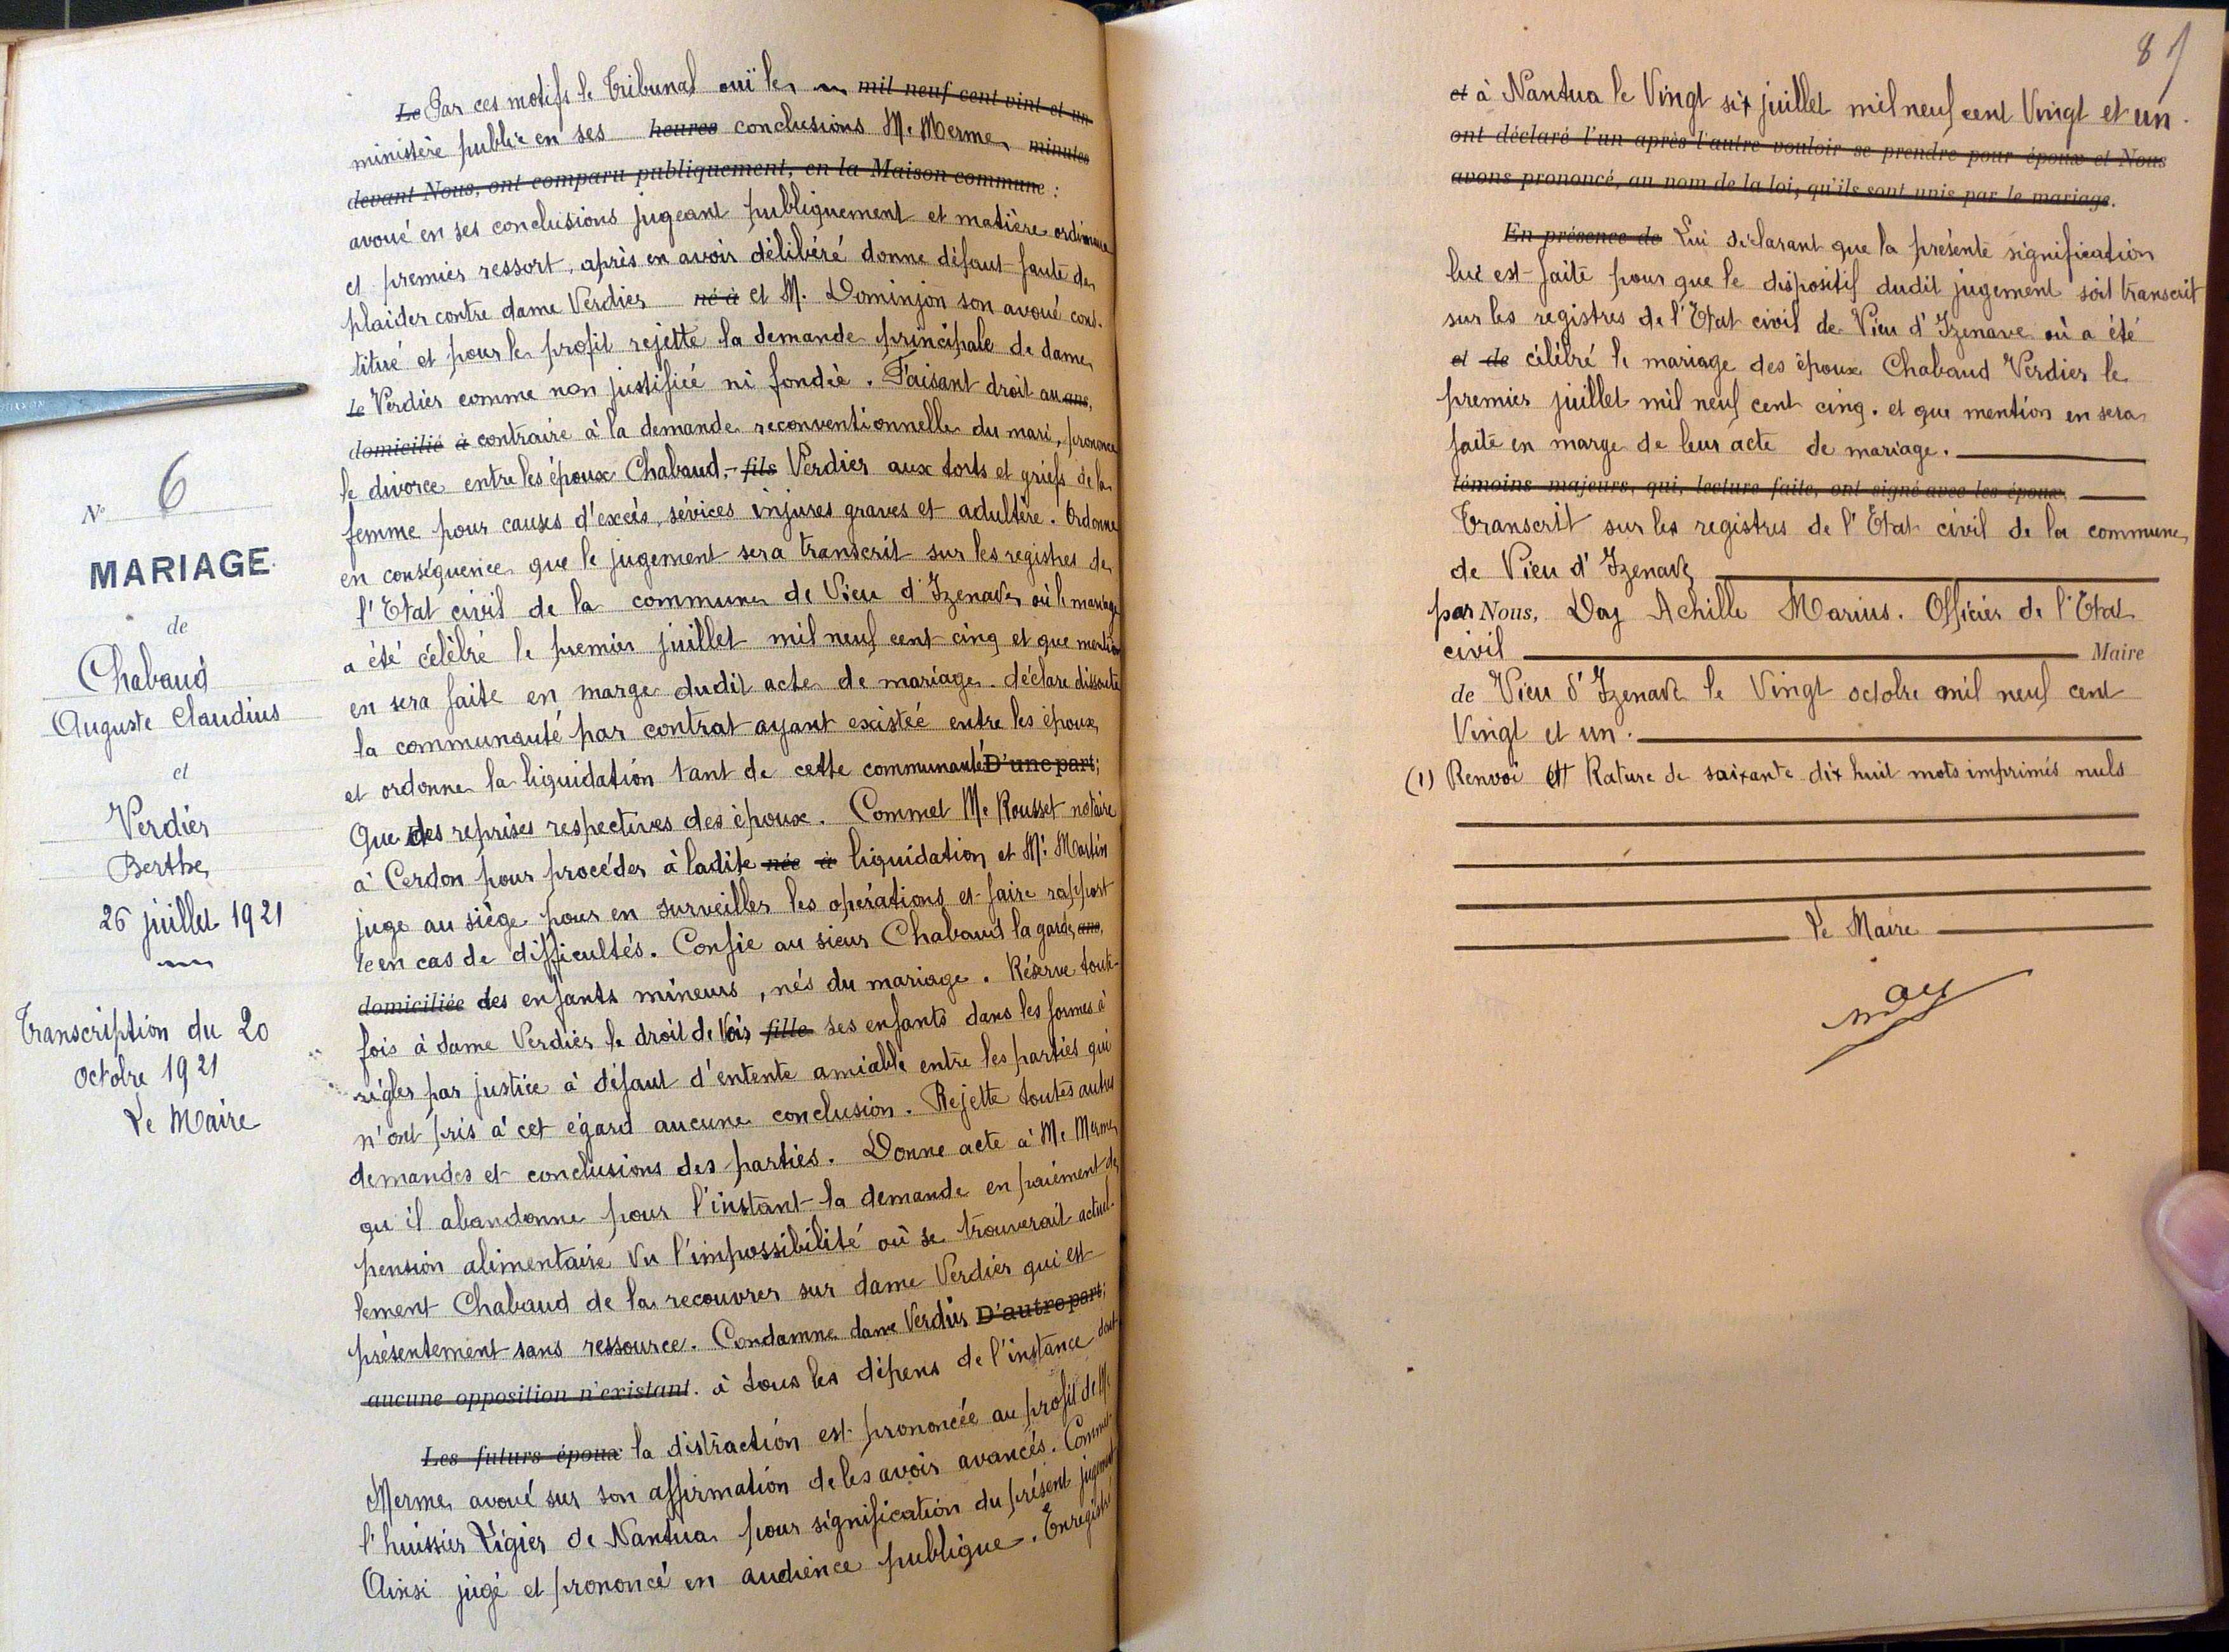 N° 6
MARIAGE
de
Chabaud
Auguste Claudius
et
Verdier
Berthe
26 juillet 1921
Transcription du 20
octobre 1921
Le Maire
Le Par ces motifs le Tribunal ouï le mil neuf cent vint et un
ministère public en ses heures conclusions Me Merme, minutes
devant Nous, ont comparu publiquement, en la Maison commune :
avoué en ses conclusions jugeant publiquement et matière ordinaire
et premier ressort, après en avoir délibéré donne défaut faute de
plaider contre dame Verdier né à et M. Dominjon son avoué cons-
titué et pour le profit rejette la demande principale de dame
le Verdier comme non justifiée ni fondée. Faisant droit au ans,
domicilié à contraire à la demande reconventionnelle du mari, prononce
le divorce entre les époux Chabaud - fils Verdier aux torts et griefs de la
femme pour causes d'excès, sévices injures graves et adultère. Ordonne
en conséquence que le jugement sera transcrit sur les registres de
l'Etat civil de la commune de Vieu d'Izenave où le mariage
a été célébré le premier juillet mil neuf cent cinq et que mention
en sera faite en marge dudit acte de mariage. déclare dissoute
la communauté par contrat ayant existée entre les époux
et ordonne la liquidation tant de cette communauté D'une part;
Que des reprises respectives des époux. Commet Me Rousset notaire
à Cerdon pour procéder à ladite née à liquidation et Mr Martin
juge au siège pour en surveiller les opérations et faire rapport
le en cas de difficultés. Confie au sieur Chabaud la garde ans,
domiciliée des enfants mineurs, nés du mariage. Réserve toute-
fois à dame Verdier le droit de Voir fille ses enfants dans les formes à
régler par justice à défaut d'entente amiable entre les parties qui
n'ont pris à cet égard aucune conclusion. Rejette toutes autres
demandes et conclusions des parties. Donne acte à Me Merme
qu'il abandonne pour l'instant la demande en paiement de
pension alimentaire Vu l'impossibilité où se trouverait actuel-
lement Chabaud de la recouvrer sur dame Verdier qui est
présentement sans ressource. Condamne dame Verdier D'autre part;
aucune opposition n'existant. à tous les dépens de l'instance dont
Les futurs époux la distraction est prononcée au profit de Me
Merme avoué sur son affirmation de les avoir avancés. Commet
l'huissier Ligier de Nantua pour signification du présent jugement
Ainsi jugé et prononcé en audience publique. Enregistré
87
et à Nantua le Vingt six juillet mil neuf cent Vingt et un.
ont déclaré l'un après l'autre vouloir se prendre pour époux et Nous
avons prononcé, au nom de la loi, qu'ils sont unis par le mariage.
En présence de Lui déclarant que la présente signification
lui est faite pour que le dispositif dudit jugement soit transcrit
sur les registres de l'Etat civil de Vieu d'Izenave où a été
et de célébré le mariage des époux Chabaud Verdier le
premier juillet mil neuf cent cinq. et que mention en sera
faite en marge de leur acte de mariage.
témoins majeurs, qui, lecture faite, ont signé avec les époux
Transcrit sur les registres de l'Etat civil de la commune
de Vieu d'Izenave
par Nous, Day Achille Marius. Officier de l'Etat
civil Maire
de Vieu d'Izenave le Vingt octobre mil neuf cent
Vingt et un.
(1) Renvoi et Rature de saixante dix huit mots imprimés nuls
Le Maire
Day